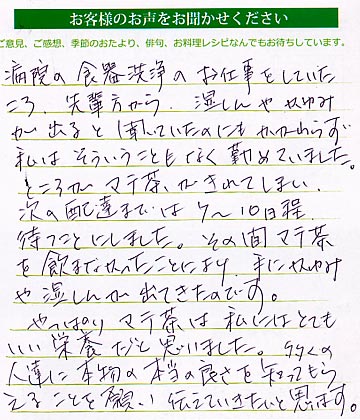 お客様のお声をお聞かせください
ご意見、ご感想、季節のおたより、俳句、お料理レシピなんでもお待ちしています。
病院の食器洗浄のお仕事をしていた
ころ、先輩方から、湿しんやかゆみ
が出ると聞いていたのにもかかわらず
私はそういうこともなく勤めていました。
ところがマテ茶がきれてしまい、
次の配達までは7～10日程、
待つことにしました。その間マテ茶
を飲まなかったことにより、手にかゆみ
や湿しんが出てきたのです。
やっぱりマテ茶は私にはとても
いい栄養だと思いました。多くの
人達に本物の本当の良さを知ってもら
えることを願い伝えていきたいと思います。